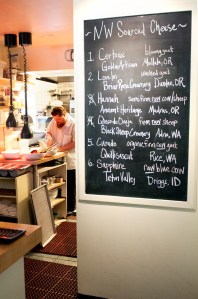 ~ NW Sourced Cheese ~
1. Certous blooming goat
Goldin Artisan Mollala, OR
2. Lomilu washed goat
Briar Rose Creamery Dundee, OR
3. Hannah semi firm raw cow/sheep
Ancient Heritage Madras, OR
4. Quesado Oveja firm raw sheep
Black Sheep Creamery Adna, WA
5. organic firm raw goat
Quillisascut Rice, WA
6. Sapphire raw blue cow
Teton Valley Driggs, ID